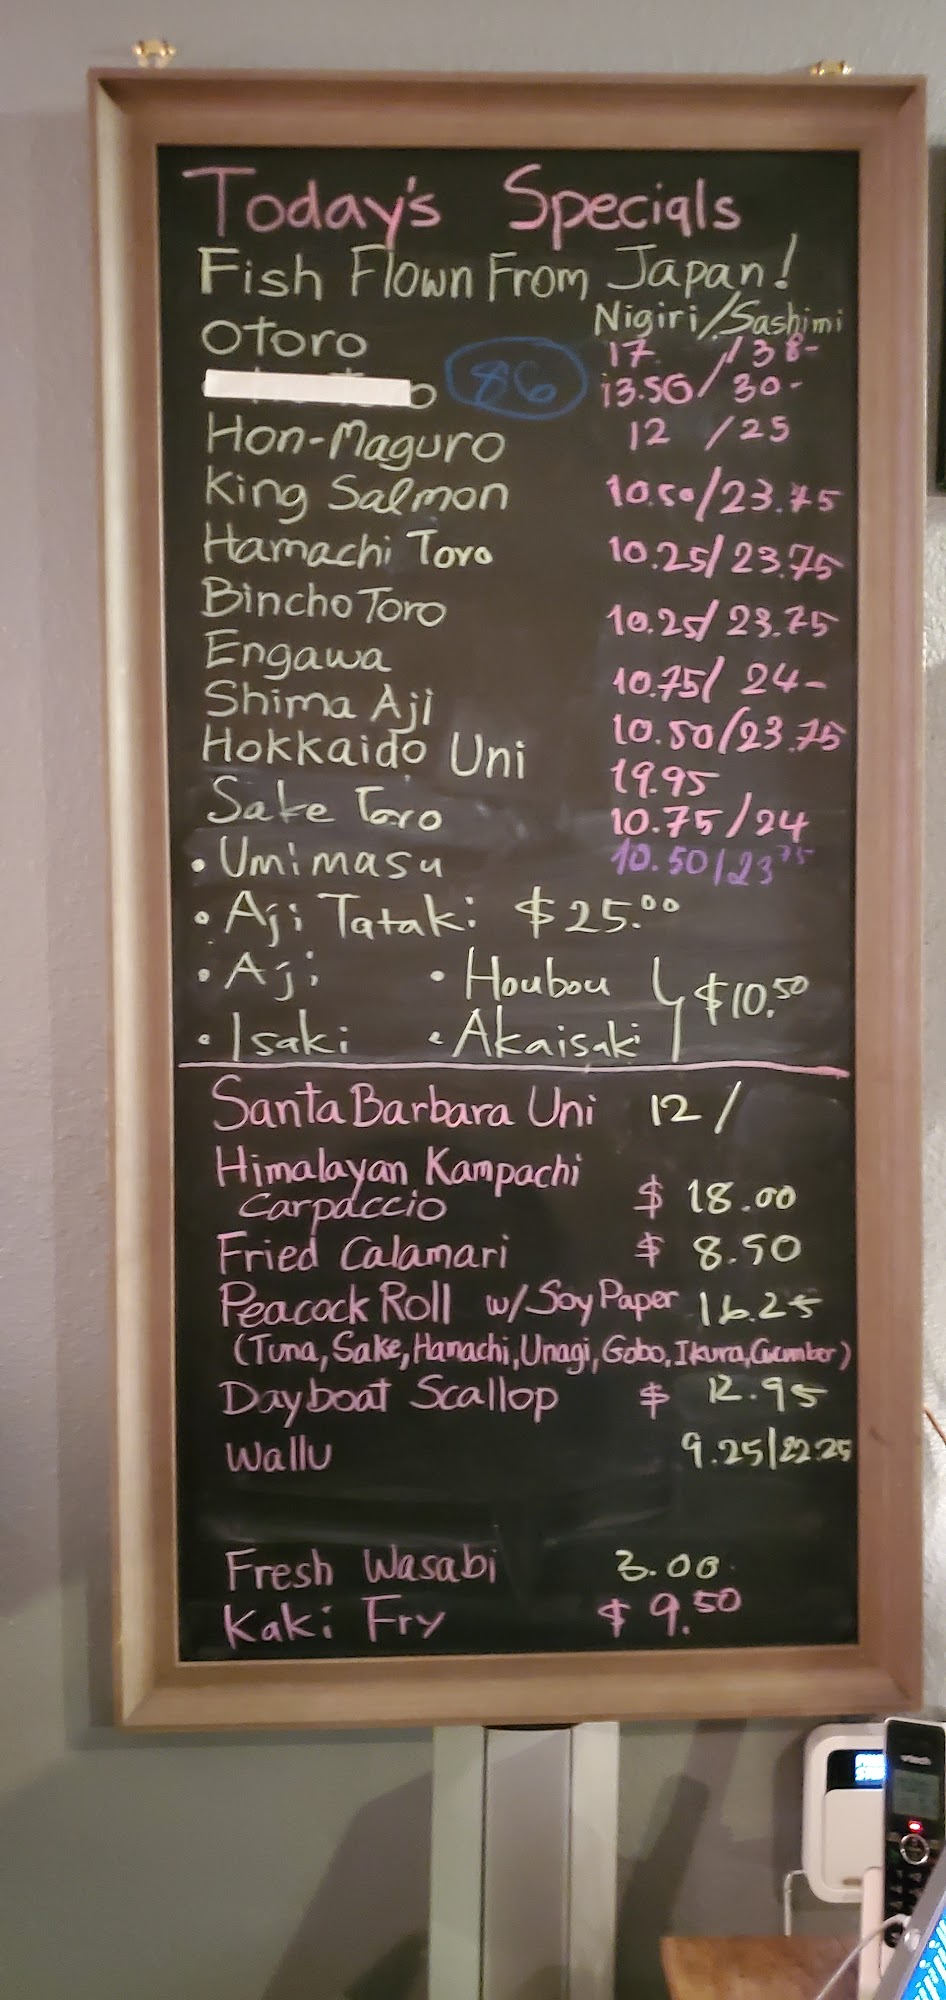 Today's Specials
Fish Flown From Japan!
Nigiri/Sashimi
Otoro 17 / 38-
86 13.50/ 30-
Hon-Maguro 12 /25
King Salmon 10.50/23.75
Hamachi Toro 10.25/23.75
Bincho Toro 10.25/23.75
Engawa 10.75/ 24-
Shima Aji 10.50/23.75
Hokkaido Uni 19.95
Sake Toro 10.75/24
• Umimasu 10.50/23 75
• Aji Tataki $25.00
• Aji • Houbou $10.50
• Isaki • Akaisaki
Santa Barbara Uni 12 /
Himalayan Kampachi
Carpaccio $ 18.00
Fried Calamari $ 8.50
Peacock Roll w/ Soy Paper 16.25
(Tuna, Sake, Hamachi, Unagi, Gobo, Ikura, Cucumber)
Dayboat Scallop $ 12.95
Wallu 9.25/22.25
Fresh Wasabi 3.00
Kaki Fry $ 9.50
vtech